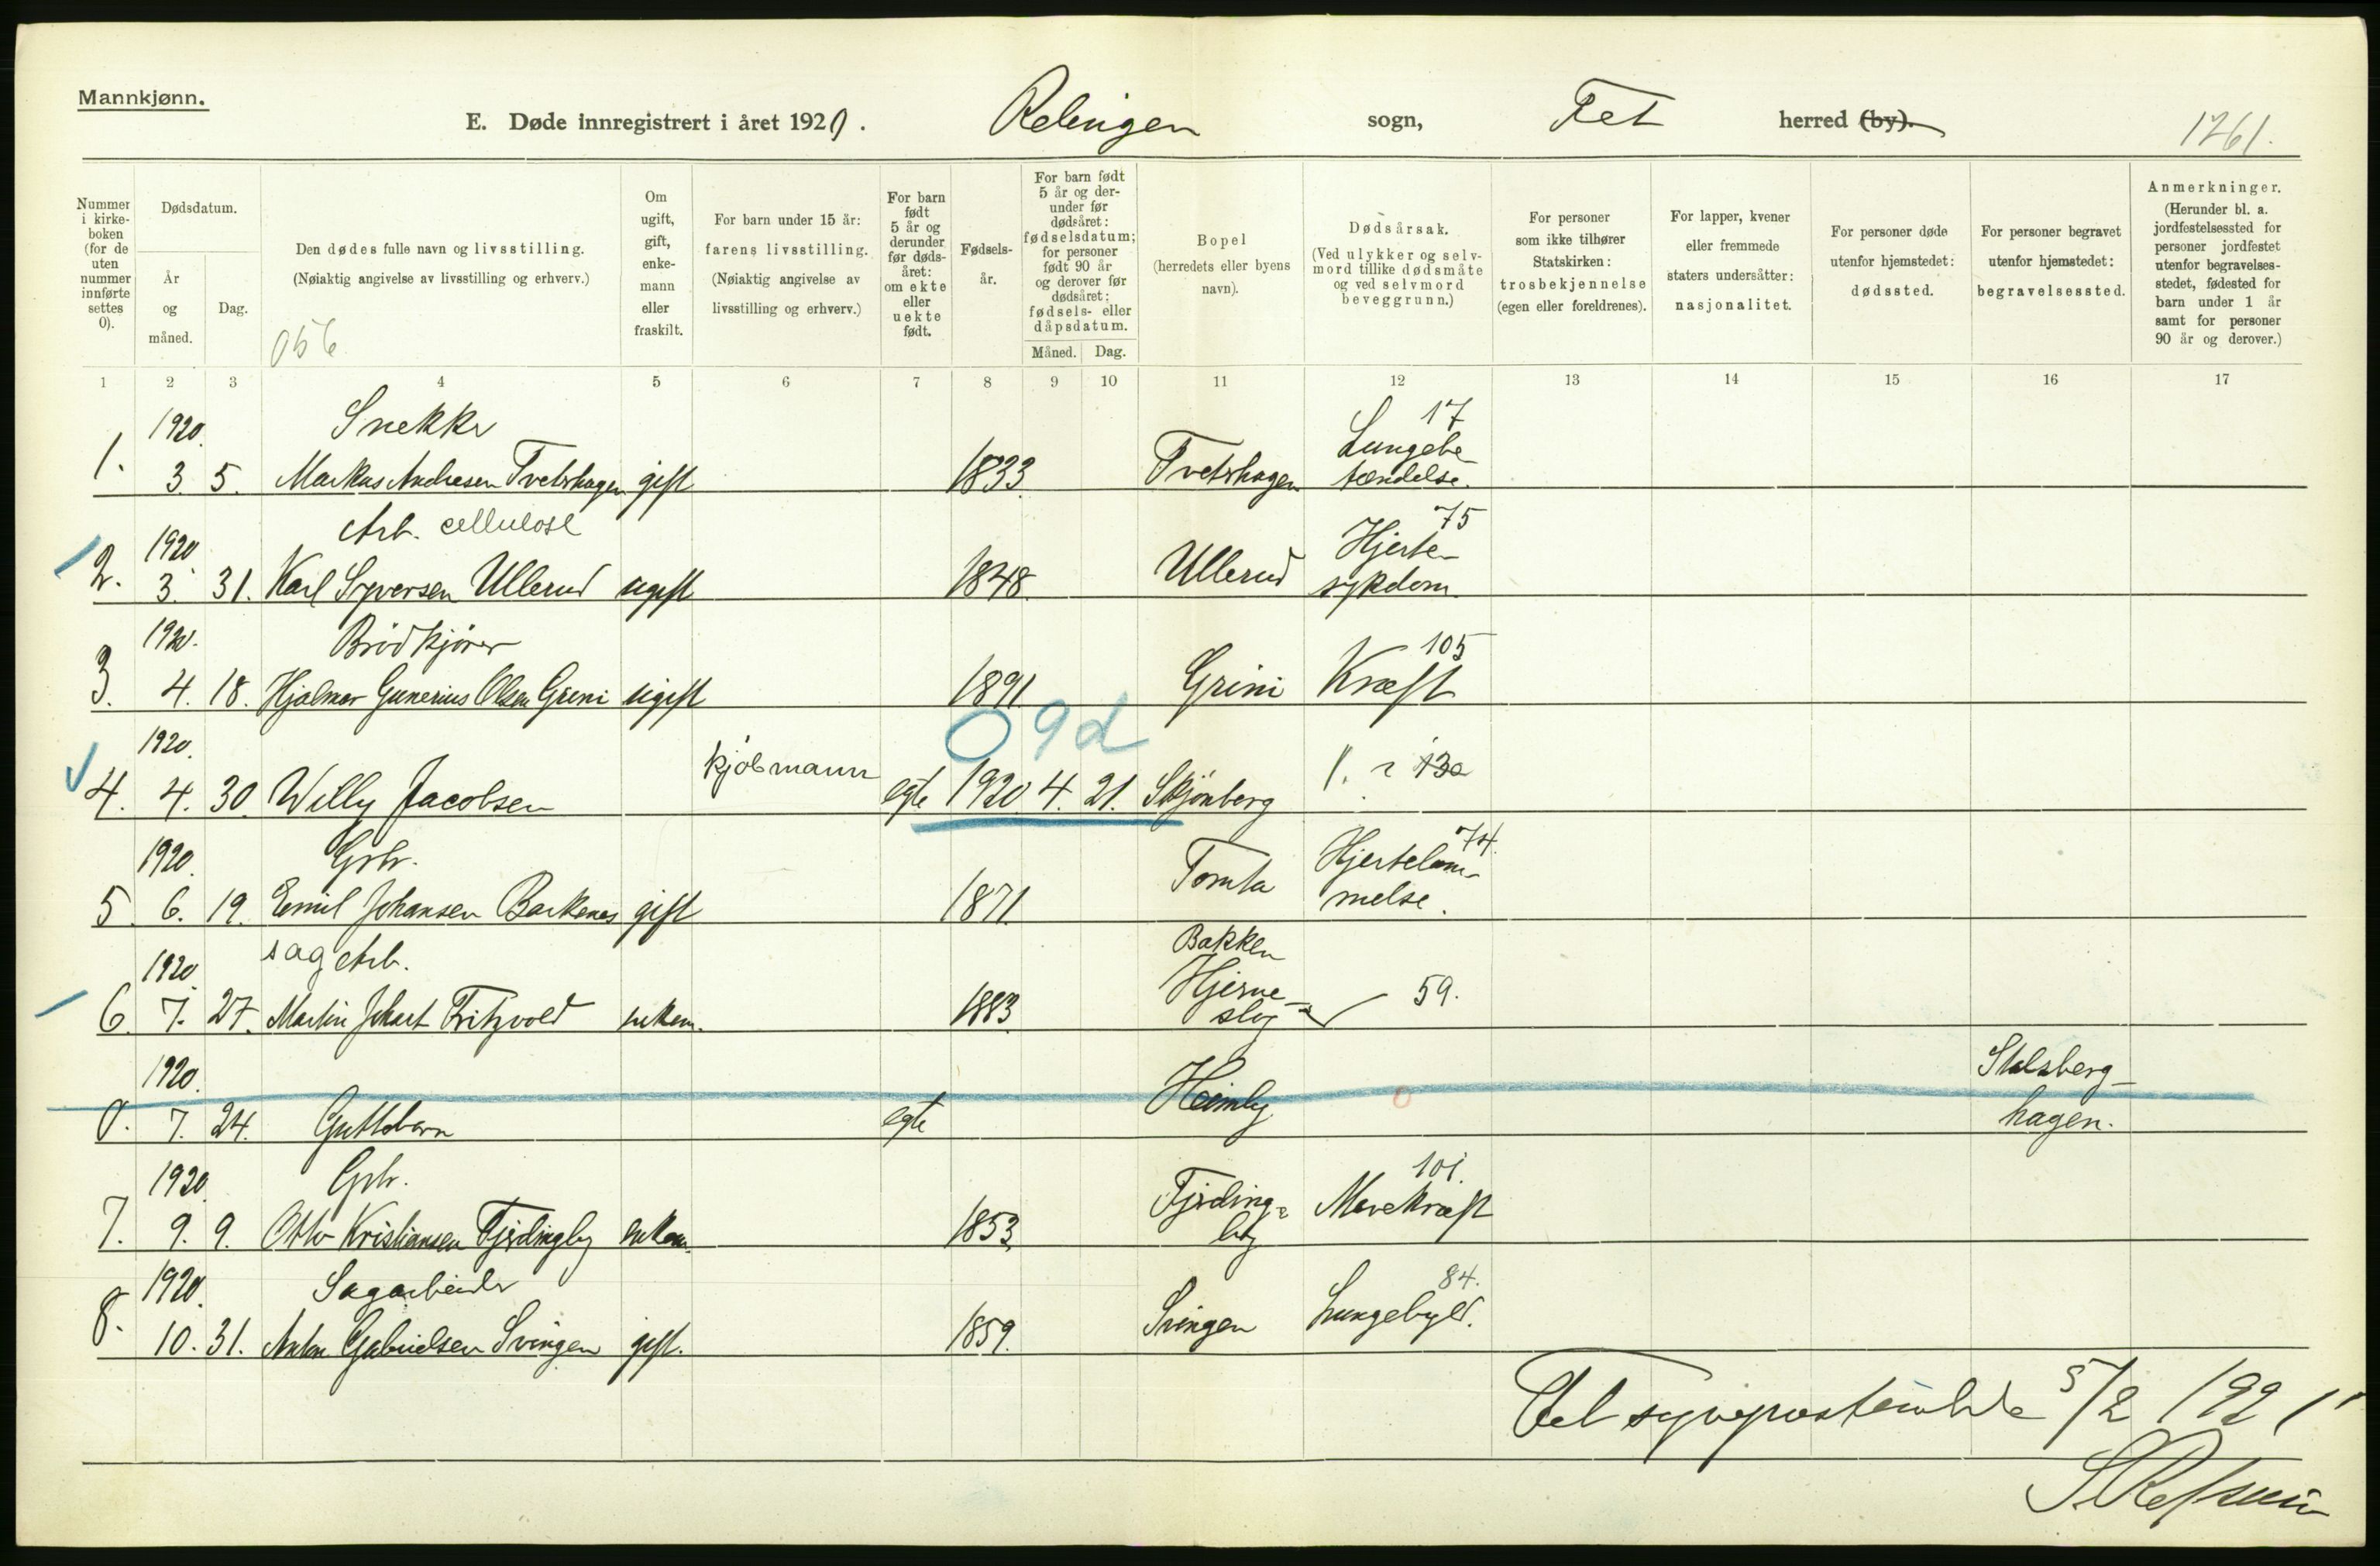 Mannkjønn.
E. Døde innregistrert i året 1920. Relingen sogn, Fet herred (by). 1261.
Nummer i kirkeboken (for de uten nummer innførte settes 0).
Dødsdatum.
År og måned.
Dag.
Den dødes fulle navn og livsstilling.
(Nøiaktig angivelse av livsstilling og erhverv.)
056
Om ugift, gift, enkemann eller fraskilt.
For barn under 15 år: farens livsstilling.
(Nøiaktig angivelse av livsstilling og erhverv.)
For barn født 5 år og derunder før dødsåret: om ekte eller uekte født.
Fødselsår.
For barn født 5 år og derunder før dødsåret: fødselsdatum; for personer født 90 år og derover før dødsåret: fødsels- eller dåpsdatum.
Måned. Dag.
Bopel (herredets eller byens navn).
Dødsårsak.
(Ved ulykker og selvmord tillike dødsmåte og ved selvmord beveggrunn.)
For personer som ikke tilhører Statskirken: trosbekjennelse (egen eller foreldrenes).
For lapper, kvener eller fremmede staters undersåtter: nasjonalitet.
For personer døde utenfor hjemstedet: dødssted.
For personer begravet utenfor hjemstedet: begravelsessted.
Anmerkninger.
(Herunder bl. a. jordfestelsessted for personer jordfestet utenfor begravelsesstedet, fødested for barn under 1 år samt for personer 90 år og derover.)
1 2 3 4 5 6 7 8 9 10 11 12 13 14 15 16 17
1920. Snekker 17
Lungebe-
1. 3. 5. Markus Andresen Tvetshagen gift 1833. Tvetshagen tændelse.
1920. Arb. cellulose 75
Hjerte-
2. 3. 31. Karl Syversen Ullerud ugift 1848. Ullerud sykdom.
1920. Brødkjører 105
3. 4. 18. Hjalmar Gunerius Olsen Grini ugift 1891. Grini Kræft
09d
1920. kjøbmann
4. 4. 30. Willy Jacobsen egte 1920 4. 21. Skjønberg 1. 130
1920. Grbr. 74.
Hjertelam-
5. 6. 19. Emil Johansen Barkenes gift 1871. Tomta melse.
1920. sag Arb. Bakken
Hjerne- 59.
6. 7. 27. Martin Johart Fritzvold enkem. 1883. slag
1920. Stalsberg-
0. 7. 24. Guttebarn egte Heimly 0 hagen.
1920. Grbr. 101.
Fjerding-
7. 9. 9. Otto Kristiansen Fjerdingby enkem. 1853. by Mavekræft
1920. Sagarbeider 84.
8. 10. 31. Anton Gabrielsen Svingen gift. 1859. Svingen Lungebyld.
Fet 5/2 1921
S. Refsum